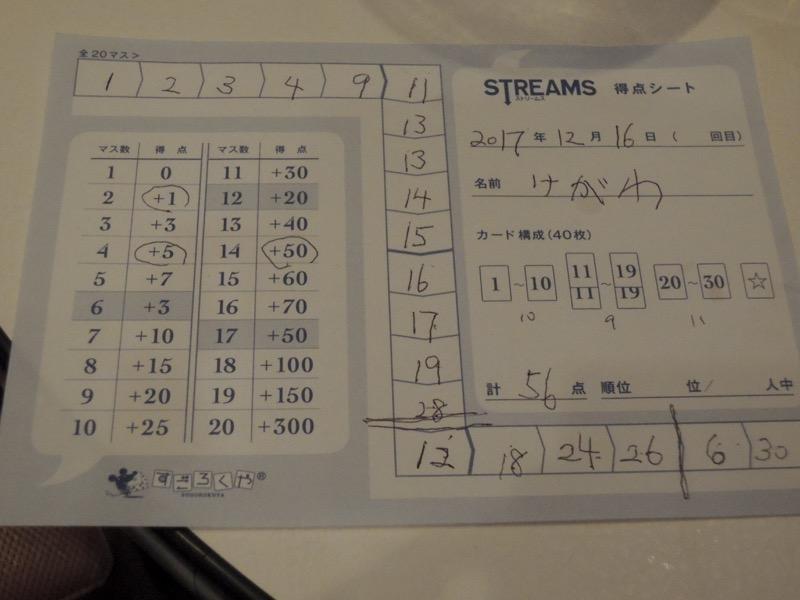 全20マス>
1 2 3 4 9 11
13
13
14
15
16
17
19
28
12 18 24 26 6 30
マス数 得点 マス数 得点
1 0 11 +30
2 +1 12 +20
3 +3 13 +40
4 +5 14 +50
5 +7 15 +60
6 +3 16 +70
7 +10 17 +50
8 +15 18 +100
9 +20 19 +150
10 +25 20 +300
すごろくや®
SUGOROKUYA
STREAMS 得点シート
ストリームス
2017年 12月 16日 ( 回目)
名前 けがわ
カード構成(40枚)
1 ~ 10 11 11 ~ 19 19 20 ~ 30 ☆
10 9 11
計 56 点 順位 位/ 人中